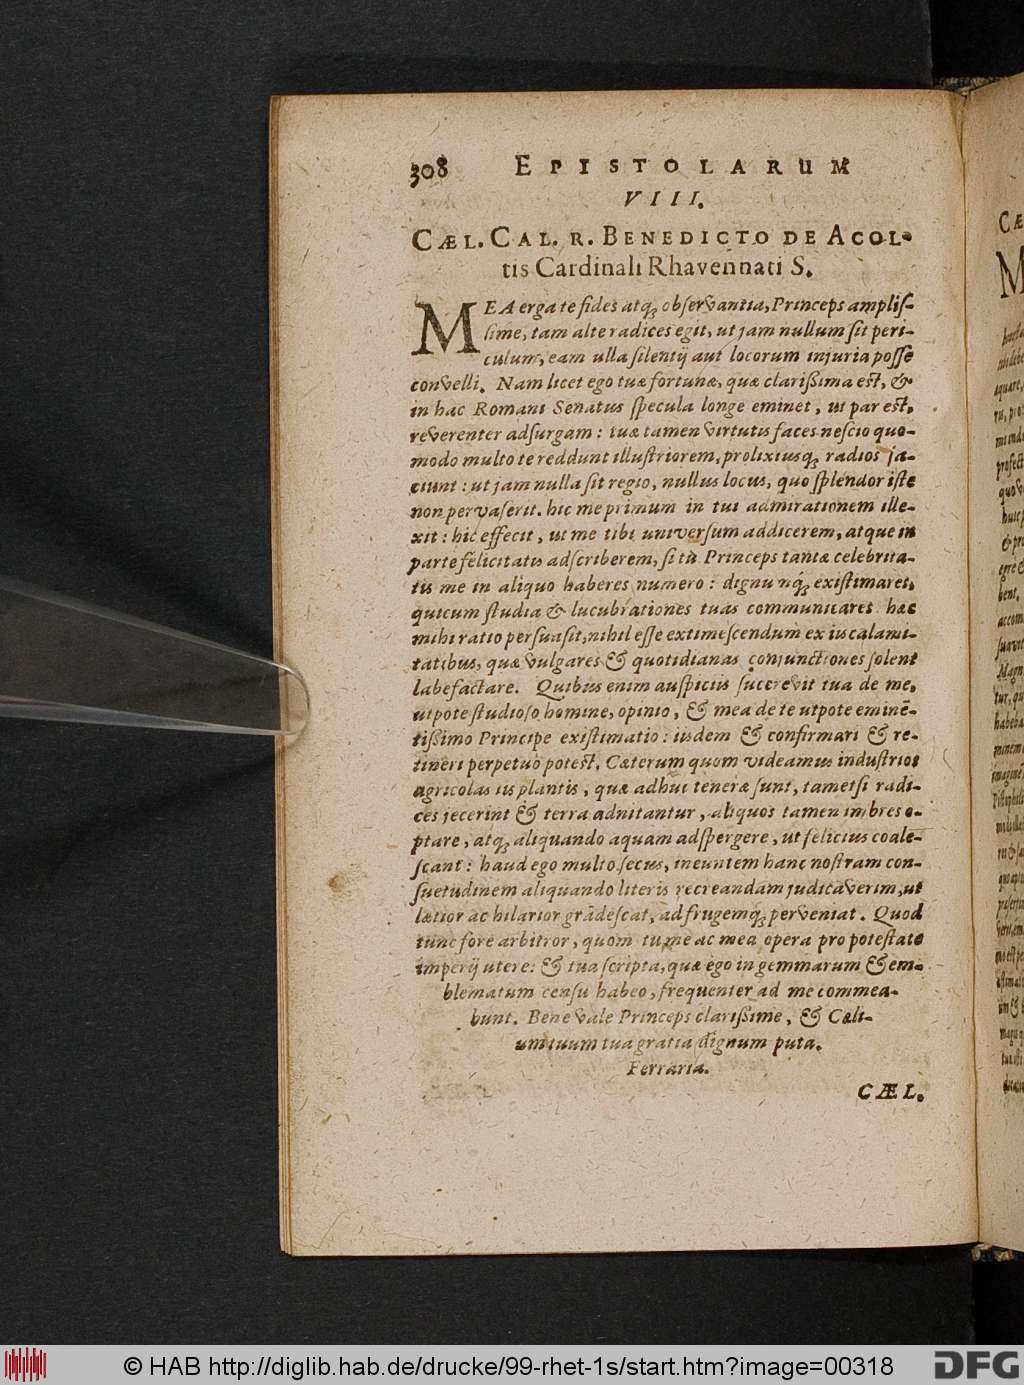 308 EPISTOLARUM
VIII.
CÆL. CAL. R. BENEDICTO DE ACOL-
tis Cardinali Rhavennati S.
MEA erga te fides atq; observantia, Princeps amplis-
sime, tam alte radices egit, ut jam nullum sit peri-
culum, eam ulla silentij aut locorum injuria posse
convelli. Nam licet ego tuæ fortunæ, quæ clarißima est, &
in hac Romani Senatus specula longe eminet, ut par est,
reverenter adsurgam: tuæ tamen virtutis faces nescio quo-
modo multo te reddunt illustriorem, prolixiusq; radios ja-
ciunt: ut jam nulla sit regio, nullus locus, quo splendor iste
non pervaserit. hic me primum in tui admirationem ille-
xit: hic effecit, ut me tibi universum addicerem, atque in
parte felicitatis adscriberem, si tu Princeps tantæ celebrita-
tis me in aliquo haberes numero: dignũ nq́; existimares,
quicum studia & lucubrationes tuas communicares hæc
mihi ratio persuasit, nihil esse extimescendum ex iis calami-
tatibus, quæ vulgares & quotidianas conjunctiones solent
labefactare. Quibus enim auspiciis succrevit tua de me,
utpote studioso homine, opinio, & mea de te utpote eminẽ-
tißimo Principe existimatio: iisdem & confirmari & re-
tineri perpetuò potest. Cæterum quom videamus industrios
agricolas iis plantis, quæ adhuc teneræ sunt, tametsi radi-
ces jecerint & terra adnitantur, aliquos tamen imbres o-
ptare, atq; aliquando aquam adspergere, ut felicius coale-
scant: haud ego multo secus, ineuntem hanc nostram con-
suetudinem aliquando literis recreandam judicaverim, ut
lætior ac hilarior grãdescat, ad frugemq́; perveniat. Quod
tunc fore arbitror, quom tu me ac mea opera pro potestate
imperij utere: & tua scripta, quæ ego in gemmarum & em-
blematum censu habeo, frequenter ad me commea-
bunt. Bene vale Princeps clarißime, & Cæli-
um tuum tua gratia dignum puta.
Ferraria.
CÆL.
© HAB http://diglib.hab.de/drucke/99-rhet-1s/start.htm?image=00318
DFG